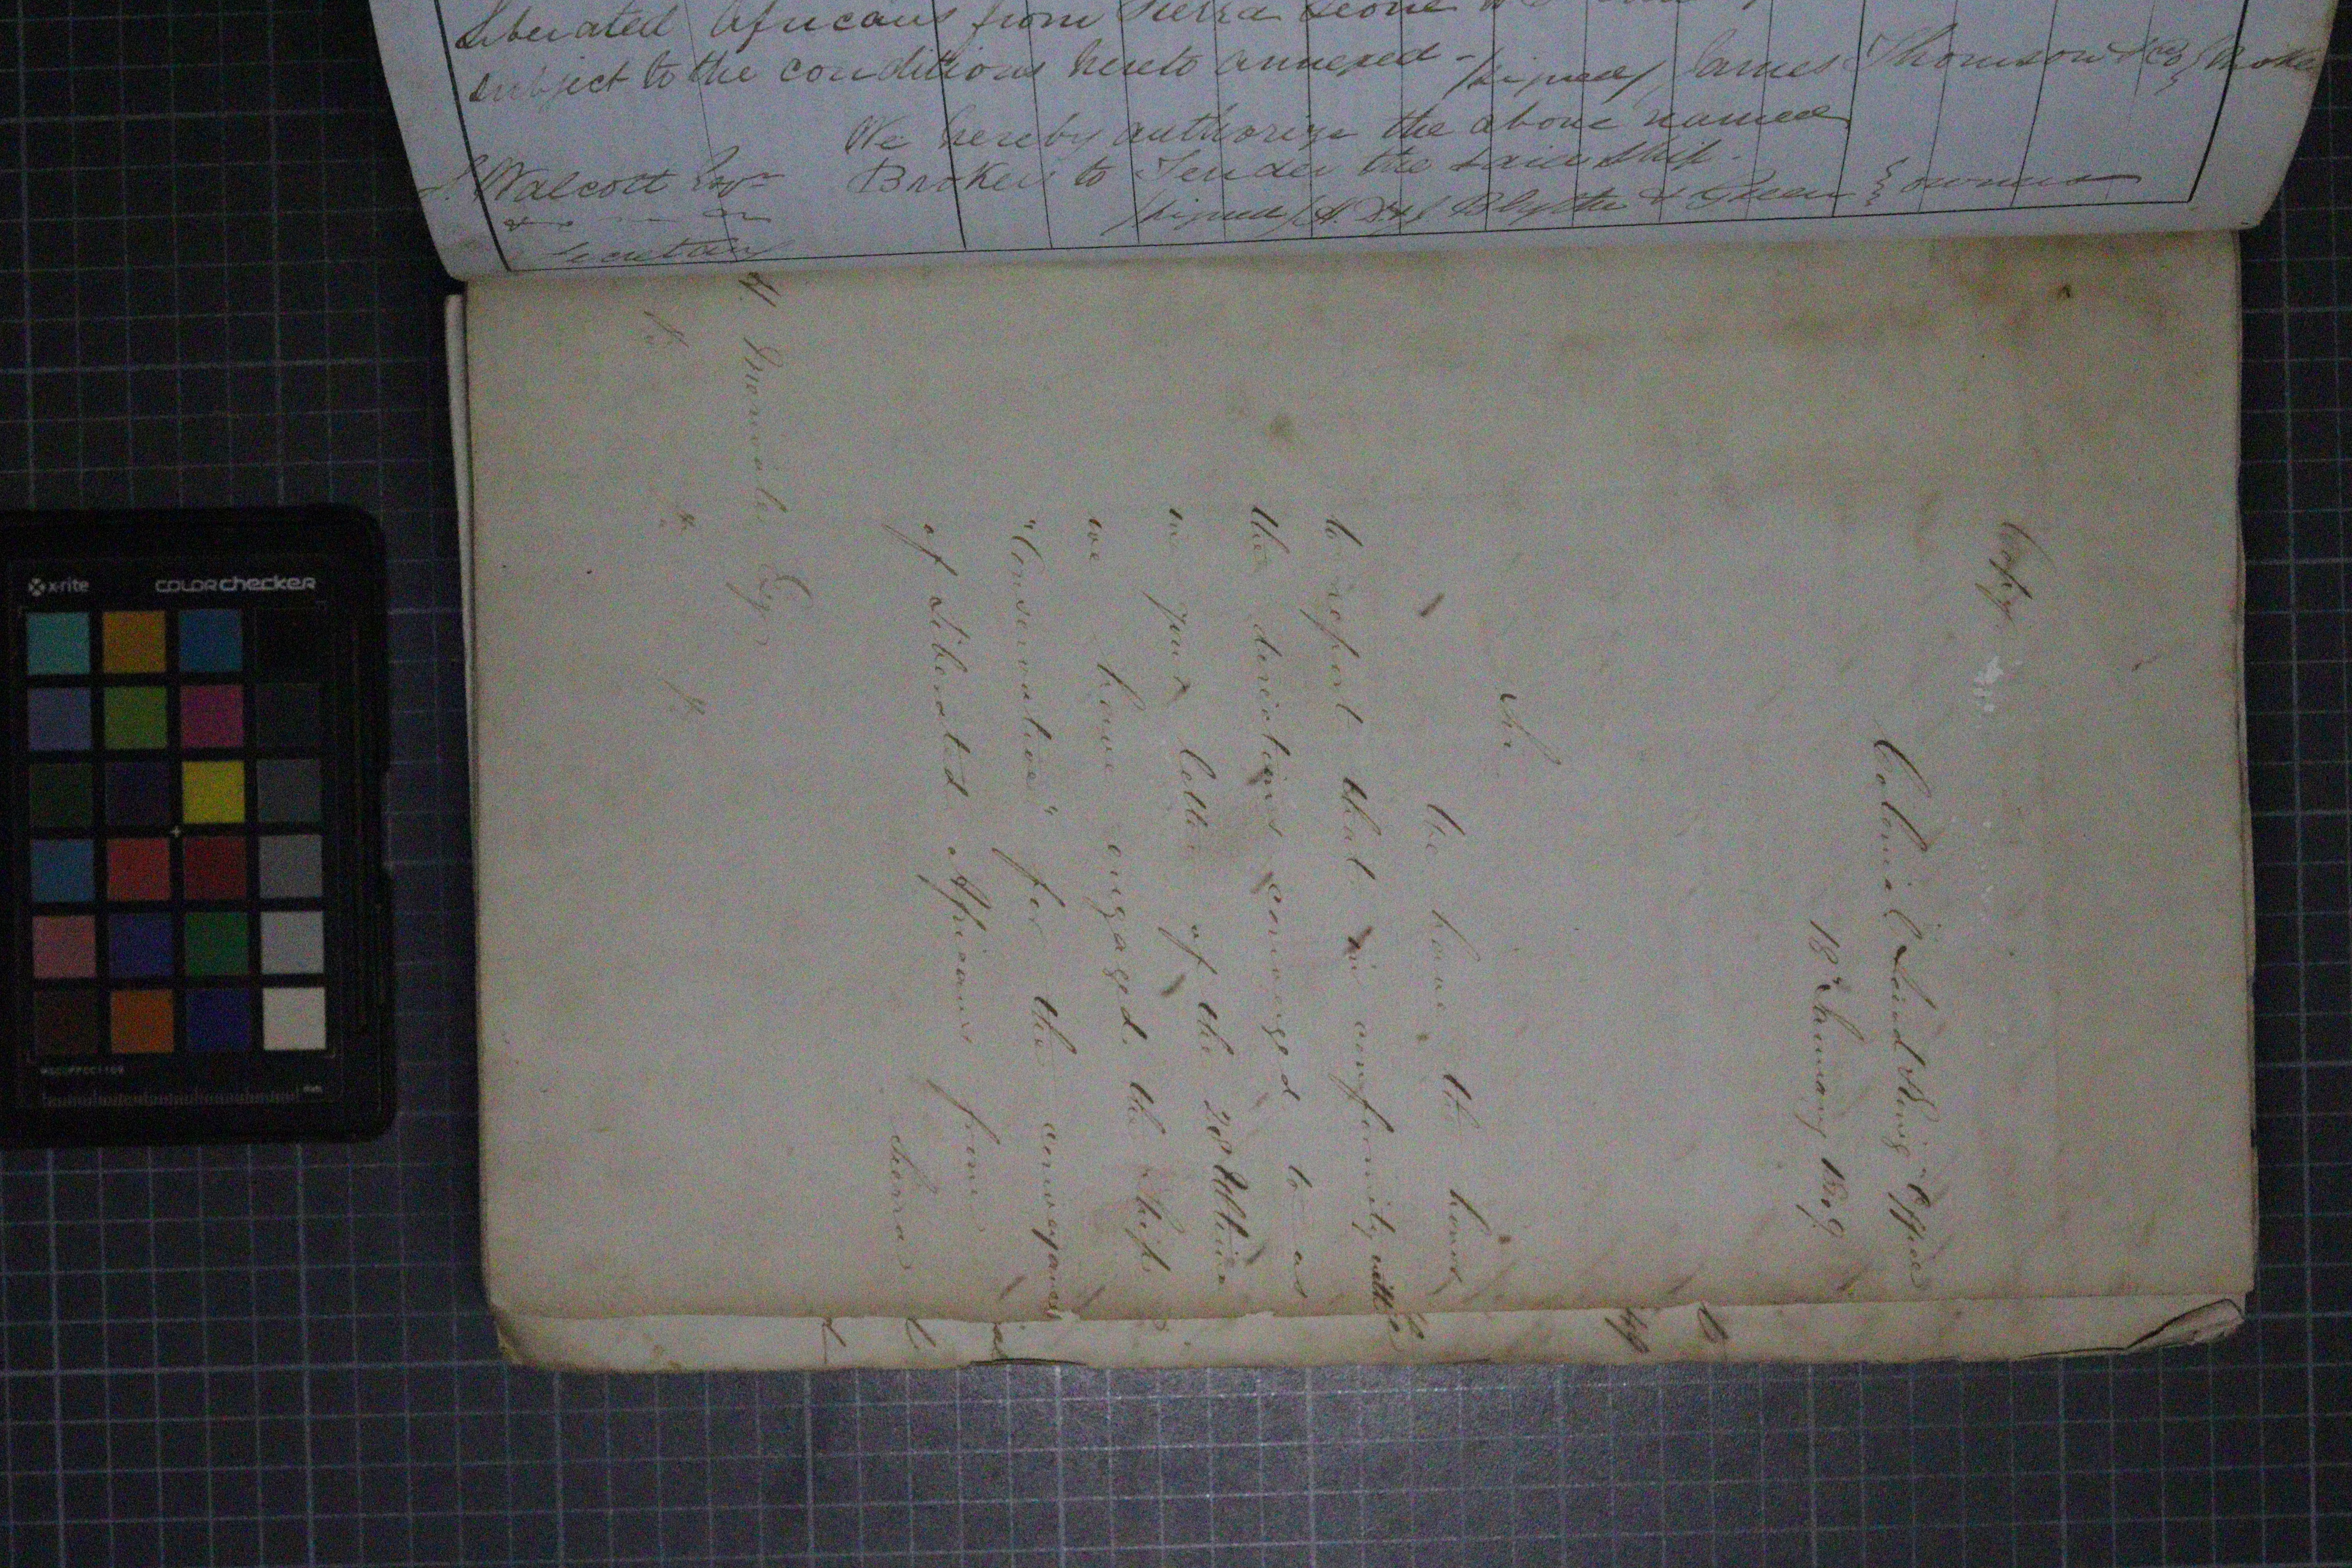 Liberated Africans from Sierra Leone
subject to the conditions hereto annexed - /signed/ James Thomson & Co } Broker
We hereby authorize the above named
Broker to Tender the said Ship.
S. Walcott Esqre
/signed/ Blyth & Green } owners
Secretary
Copy
Colonial Land & Emig Office
18 January 1849
Sir
We have the honor
to report that in conformity with
the directions conveyed to us
in your letter of the 28 Ultimo
we have engaged the Ship
"Conservative" for the conveyance
of Liberated Africans from
Sierra
H. Merivale Esqr
x-rite
colorchecker
mm